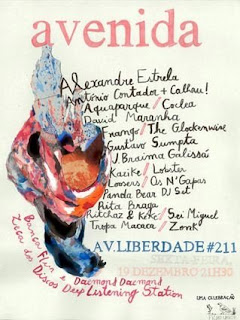 avenida
Alexandre Estrela
António Contador + Calhau!
Aquaparque / Coclea
David Maranha
Fnango / The Glockenwise
Gustavo Sumpta
J. Braima Galissá
Kaiike / Lobster
Loosers / Os N'Gapas
Panda Bear DJ Set
Rita Braga
Ritchaz & Kéké / Sei Miguel
Tropa Macaca / Zonk
Banga Fla's e
Zeca dos Discos
Daemond Daemond
Deep Listening Station
AV. LIBERDADE #211
SEXTA-FEIRA,
19 DEZEMBRO 21H30
UMA CELEBRAÇÃO